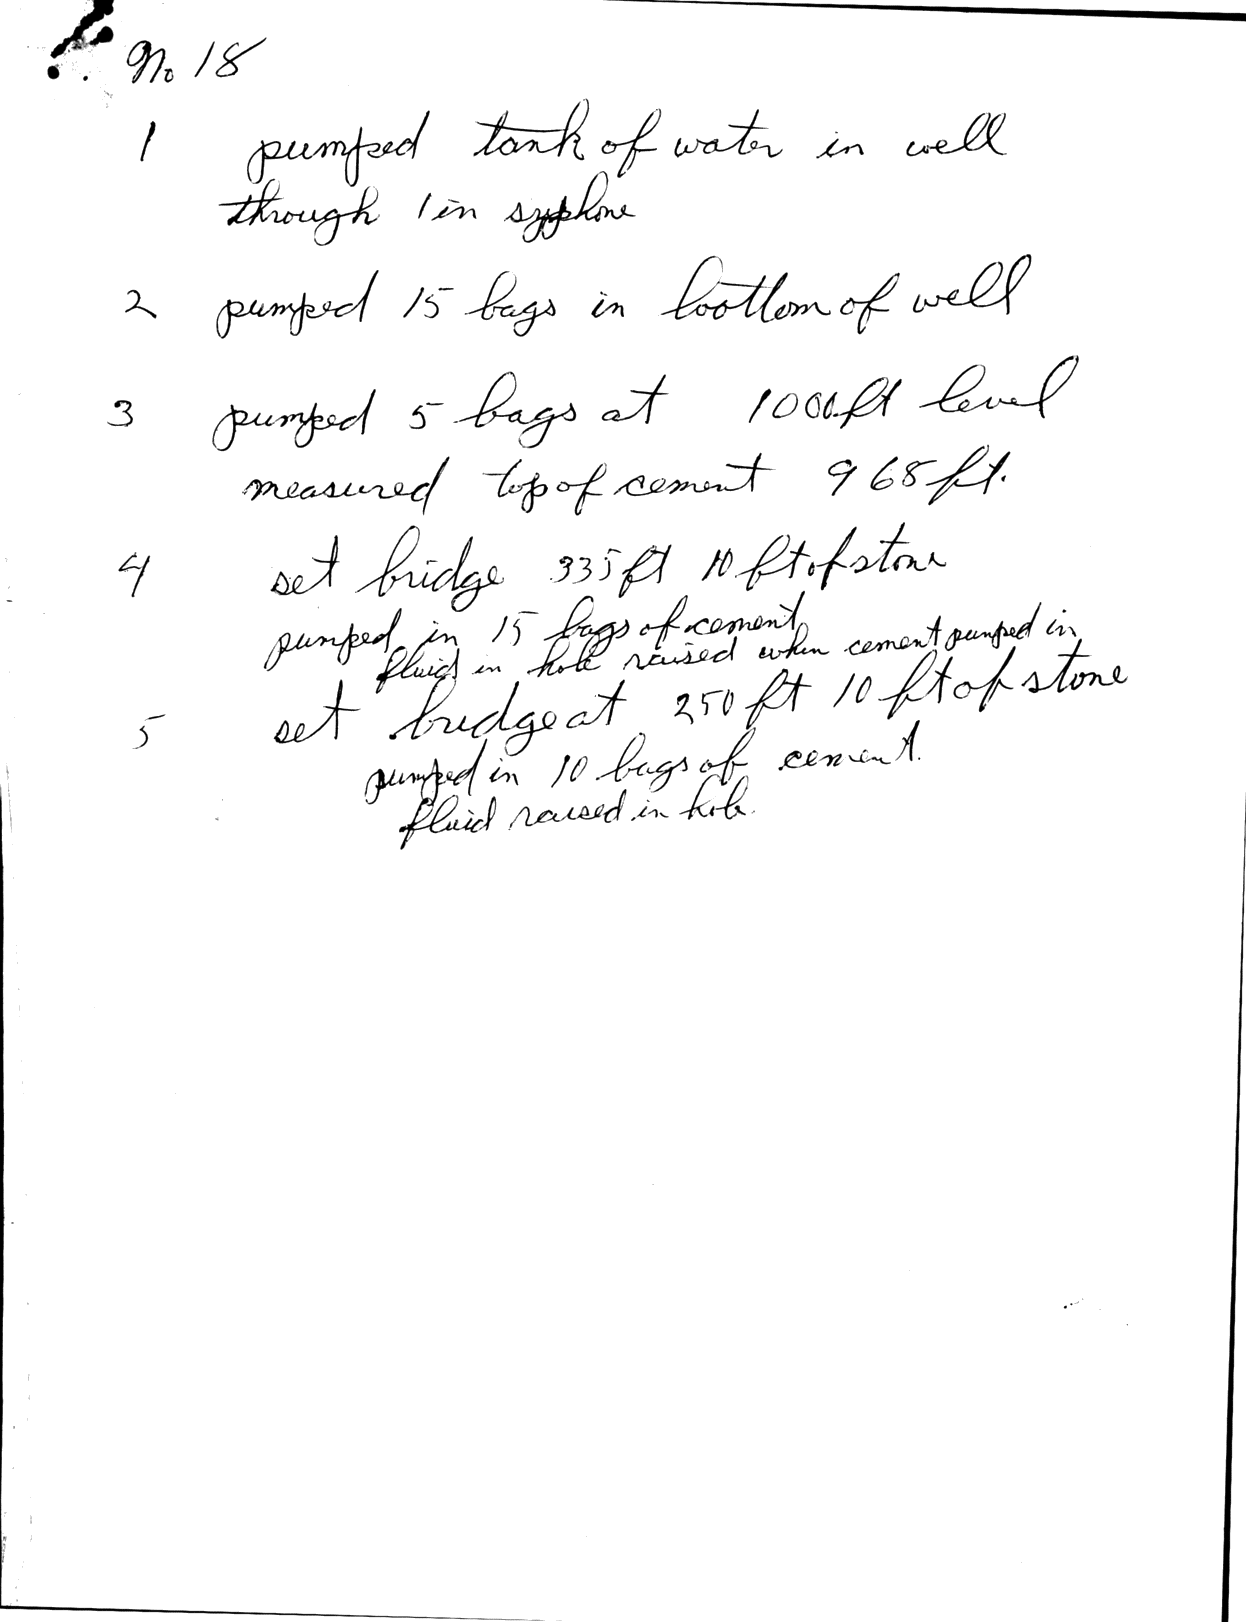 No 18
1 pumped tank of water in well
through 1 in syphone
2 pumped 15 bags in bottom of well
3 pumped 5 bags at 1000ft level
measured top of cement 968 ft.
4 set bridge 335 ft 10 ft of stone
pumped in 15 bags of cement
fluid in hole raised when cement pumped in
5 set bridge at 250 ft 10 ft of stone
pumped in 10 bags of cement.
fluid raised in hole.